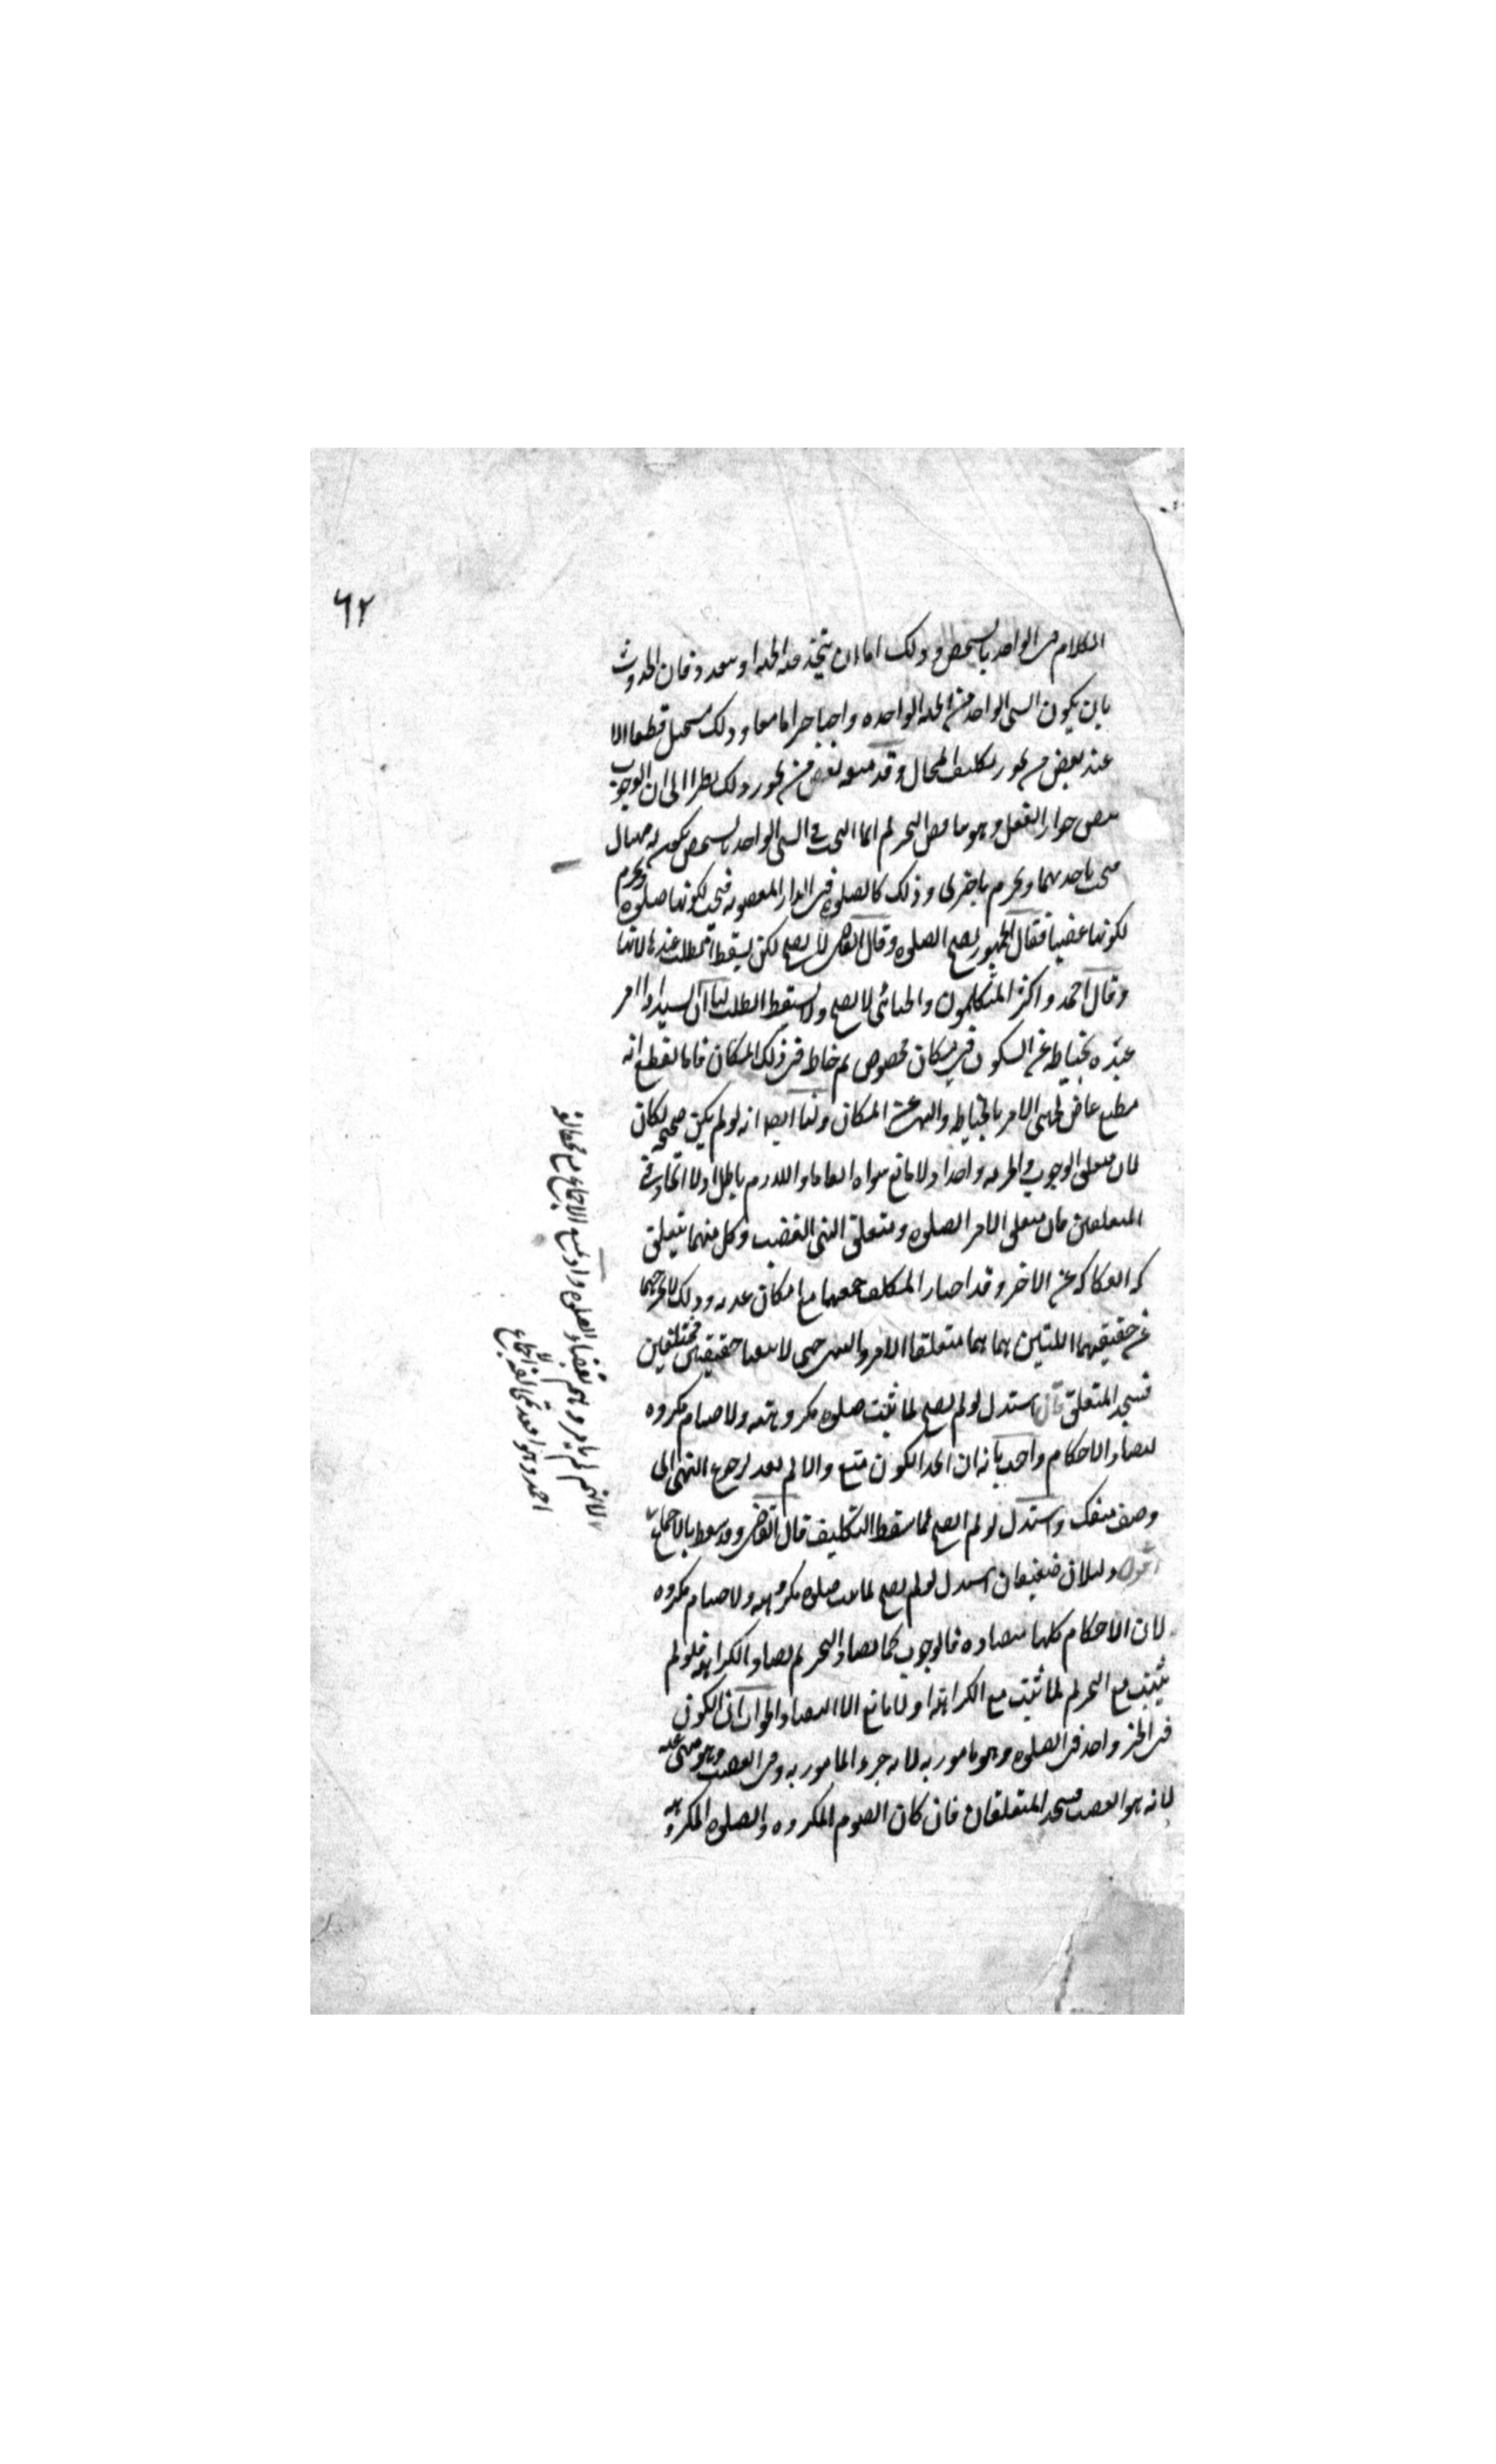 ٦٢
الكلام في الواحد بالشخص وذلك اما ان يتخذ فيه الجهة او يتعدد فان اتحدت
بان يكون الشى الواحد من الجهة الواحدة واجبا حراما معا وذلك مستحيل قطعا الا
عند بعض من يجوز تكليف المحال وقد منعه بعض من يجوز ذلك نظرا الى ان الوجوب
يتضمن جواز الفعل وهو يناقض التحريم انما البحث في الشى الواحد بالشخص يكون له جهتان
يجب باحديهما ويحرم باخرى وذلك كالصلوة في الدار المغصوبة فيجب لكونها صلوة ويحرم
لكونها غصبا فقال الجمهور يصح الصلوة وقال القاضى لا يصح لكن يسقط الطلب عندها لا بها
وقال احمد واكثر المتكلمون والجبائى لا يصح ولا يسقط الطلب لنا ان السيد اذا امر
عبده بخياطة عن السكون في مكان مخصوص ثم خاط في ذلك المكان فانا نقطع انه
مطيع عاص لجهتى الامر بالخياطة والنهى عن المكان ولنا ايضا انه لو لم يكن صحيحة لكان
لان متعلق الوجوب والحرمة واحدا ولا مانع سواه اتفاقا واللازم باطل اذ لا اتحاد في
المتعلقين فان متعلق الامر الصلوة ومتعلق النهى الغضب وكل منهما يتعلق
انفكاكه عن الاخر وقد اختار المكلف جمعهما مع امكان عدمه وذلك لا يخرجهما
عن حقيقتهما اللتين هما هما متعلقا الامر والنهى حتى لا يبقيا حقيقتين مختلفتين
فيتحد المتعلق قال استدل لو لم يصح لما ثبت صلوة مكروهة ولا صيام مكروه
لتضاد الاحكام واجيب بانه ان اتحد الكون منع والا لم يفد لرجوع النهى الى
وصف منفك واستدل لو لم يصح لما سقط التكليف قال القاضى وقد سقط بالاجماع
اقول دليلان ضعيفان استدل لو لم يصح لما ثبت صلوة مكروهة ولا صيام مكروه
لان الاحكام كلها متضادة فالوجوب كما يضاد التحريم يضاد الكراهة فلو لم
يثبت مع التحريم لما ثبت مع الكراهة اذ لا مانع الا التضاد الجواب ان الكون
في الحيز واحد في الصلوة وهو مامور به لانه جزء المامور به وفى الغصب وهو منهى عنه
لانه هو الغصب فيتحد المتعلقان فان كان الصوم المكروه والصلوة المكروهة
لانهم لم يامروهم بقضاء الصلوة ورد بمنع الاجماع مع مخالفة
احمد وهو اقعد بمعرفة الاجماع